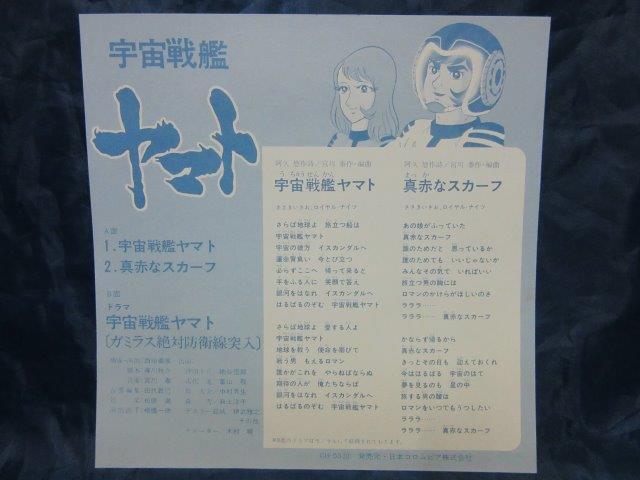 宇宙戦艦
ヤマト
A面
1.宇宙戦艦ヤマト
2.真赤なスカーフ
B面
ドラマ
宇宙戦艦ヤマト
〔ガミラス絶対防衛線突入〕
ナレーター 木村 幌
阿久 悠作詩/宮川 泰作・編曲
うちゅうせんかん
宇宙戦艦ヤマト
ささきいさお、ロイヤル・ナイツ
さらば地球よ 旅立つ船は
宇宙戦艦ヤマト
宇宙の彼方 イスカンダルへ
運命背負い 今とび立つ
必らずここへ 帰って来ると
手をふる人に 笑顔で答え
銀河をはなれ イスカンダルへ
はるばるのぞむ 宇宙戦艦ヤマト
さらば地球よ 愛する人よ
宇宙戦艦ヤマト
地球を救う 使命を帯びて
戦う男 もえるロマン
誰かがこれを やらねばならぬ
期待の人が 俺たちならば
銀河をはなれ イスカンダルへ
はるばるのぞむ 宇宙戦艦ヤマト
阿久 悠作詩/宮川 泰作・編曲
まっか
真赤なスカーフ
ささきいさお、ロイヤル・ナイツ
あの娘がふっていた
真赤なスカーフ
誰のためだと 思っているか
誰のためでも いいじゃないか
みんなその気で いればいい
旅立つ男の胸には
ロマンのかけらがほしいのさ
ラララ……
ラララ…… 真赤なスカーフ
かならず帰るから
真赤なスカーフ
きっとその日も 迎えておくれ
今ははるばる 宇宙のはて
夢を見るのも 星の中
旅する男の瞳は
ロマンをいつでもうつしたい
ラララ……
ラララ…… 真赤なスカーフ
発売元・日本コロムビア株式会社